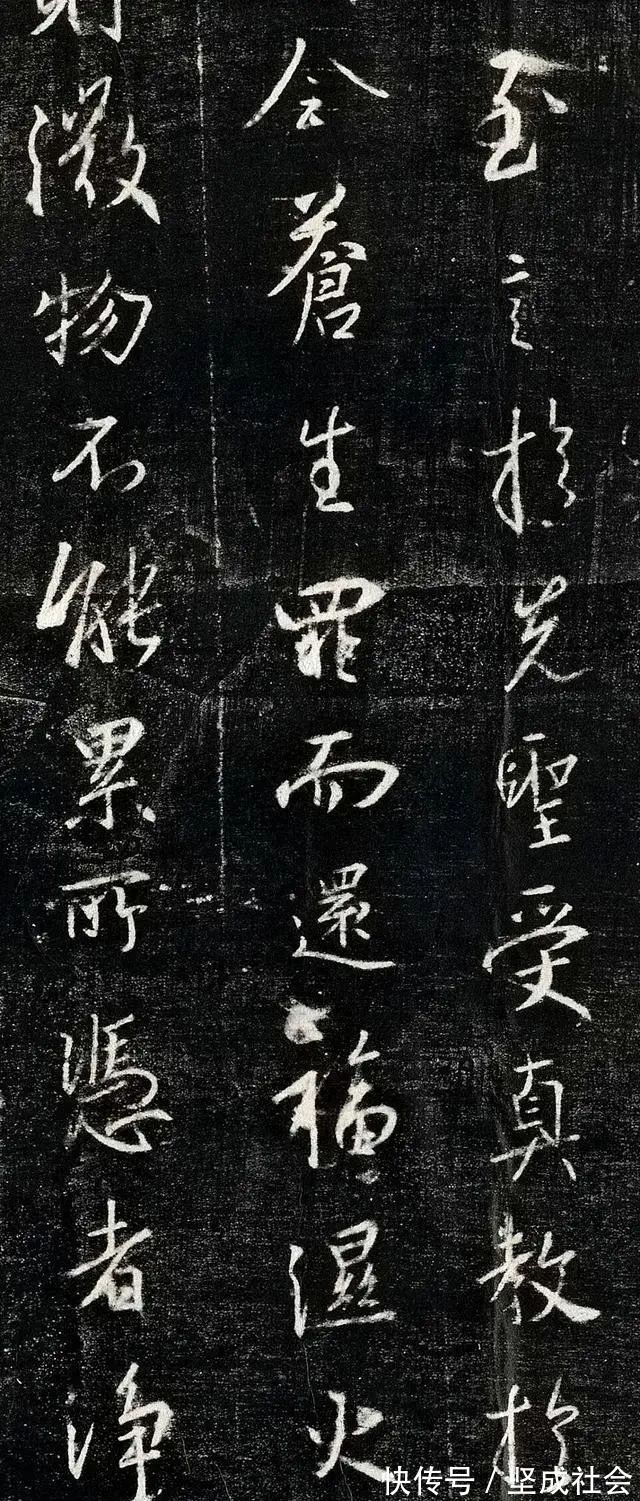 至言於先聖受真教於
全蒼生罪而還福濕火
則微物不能累所憑者淨
快传号/坚成社会